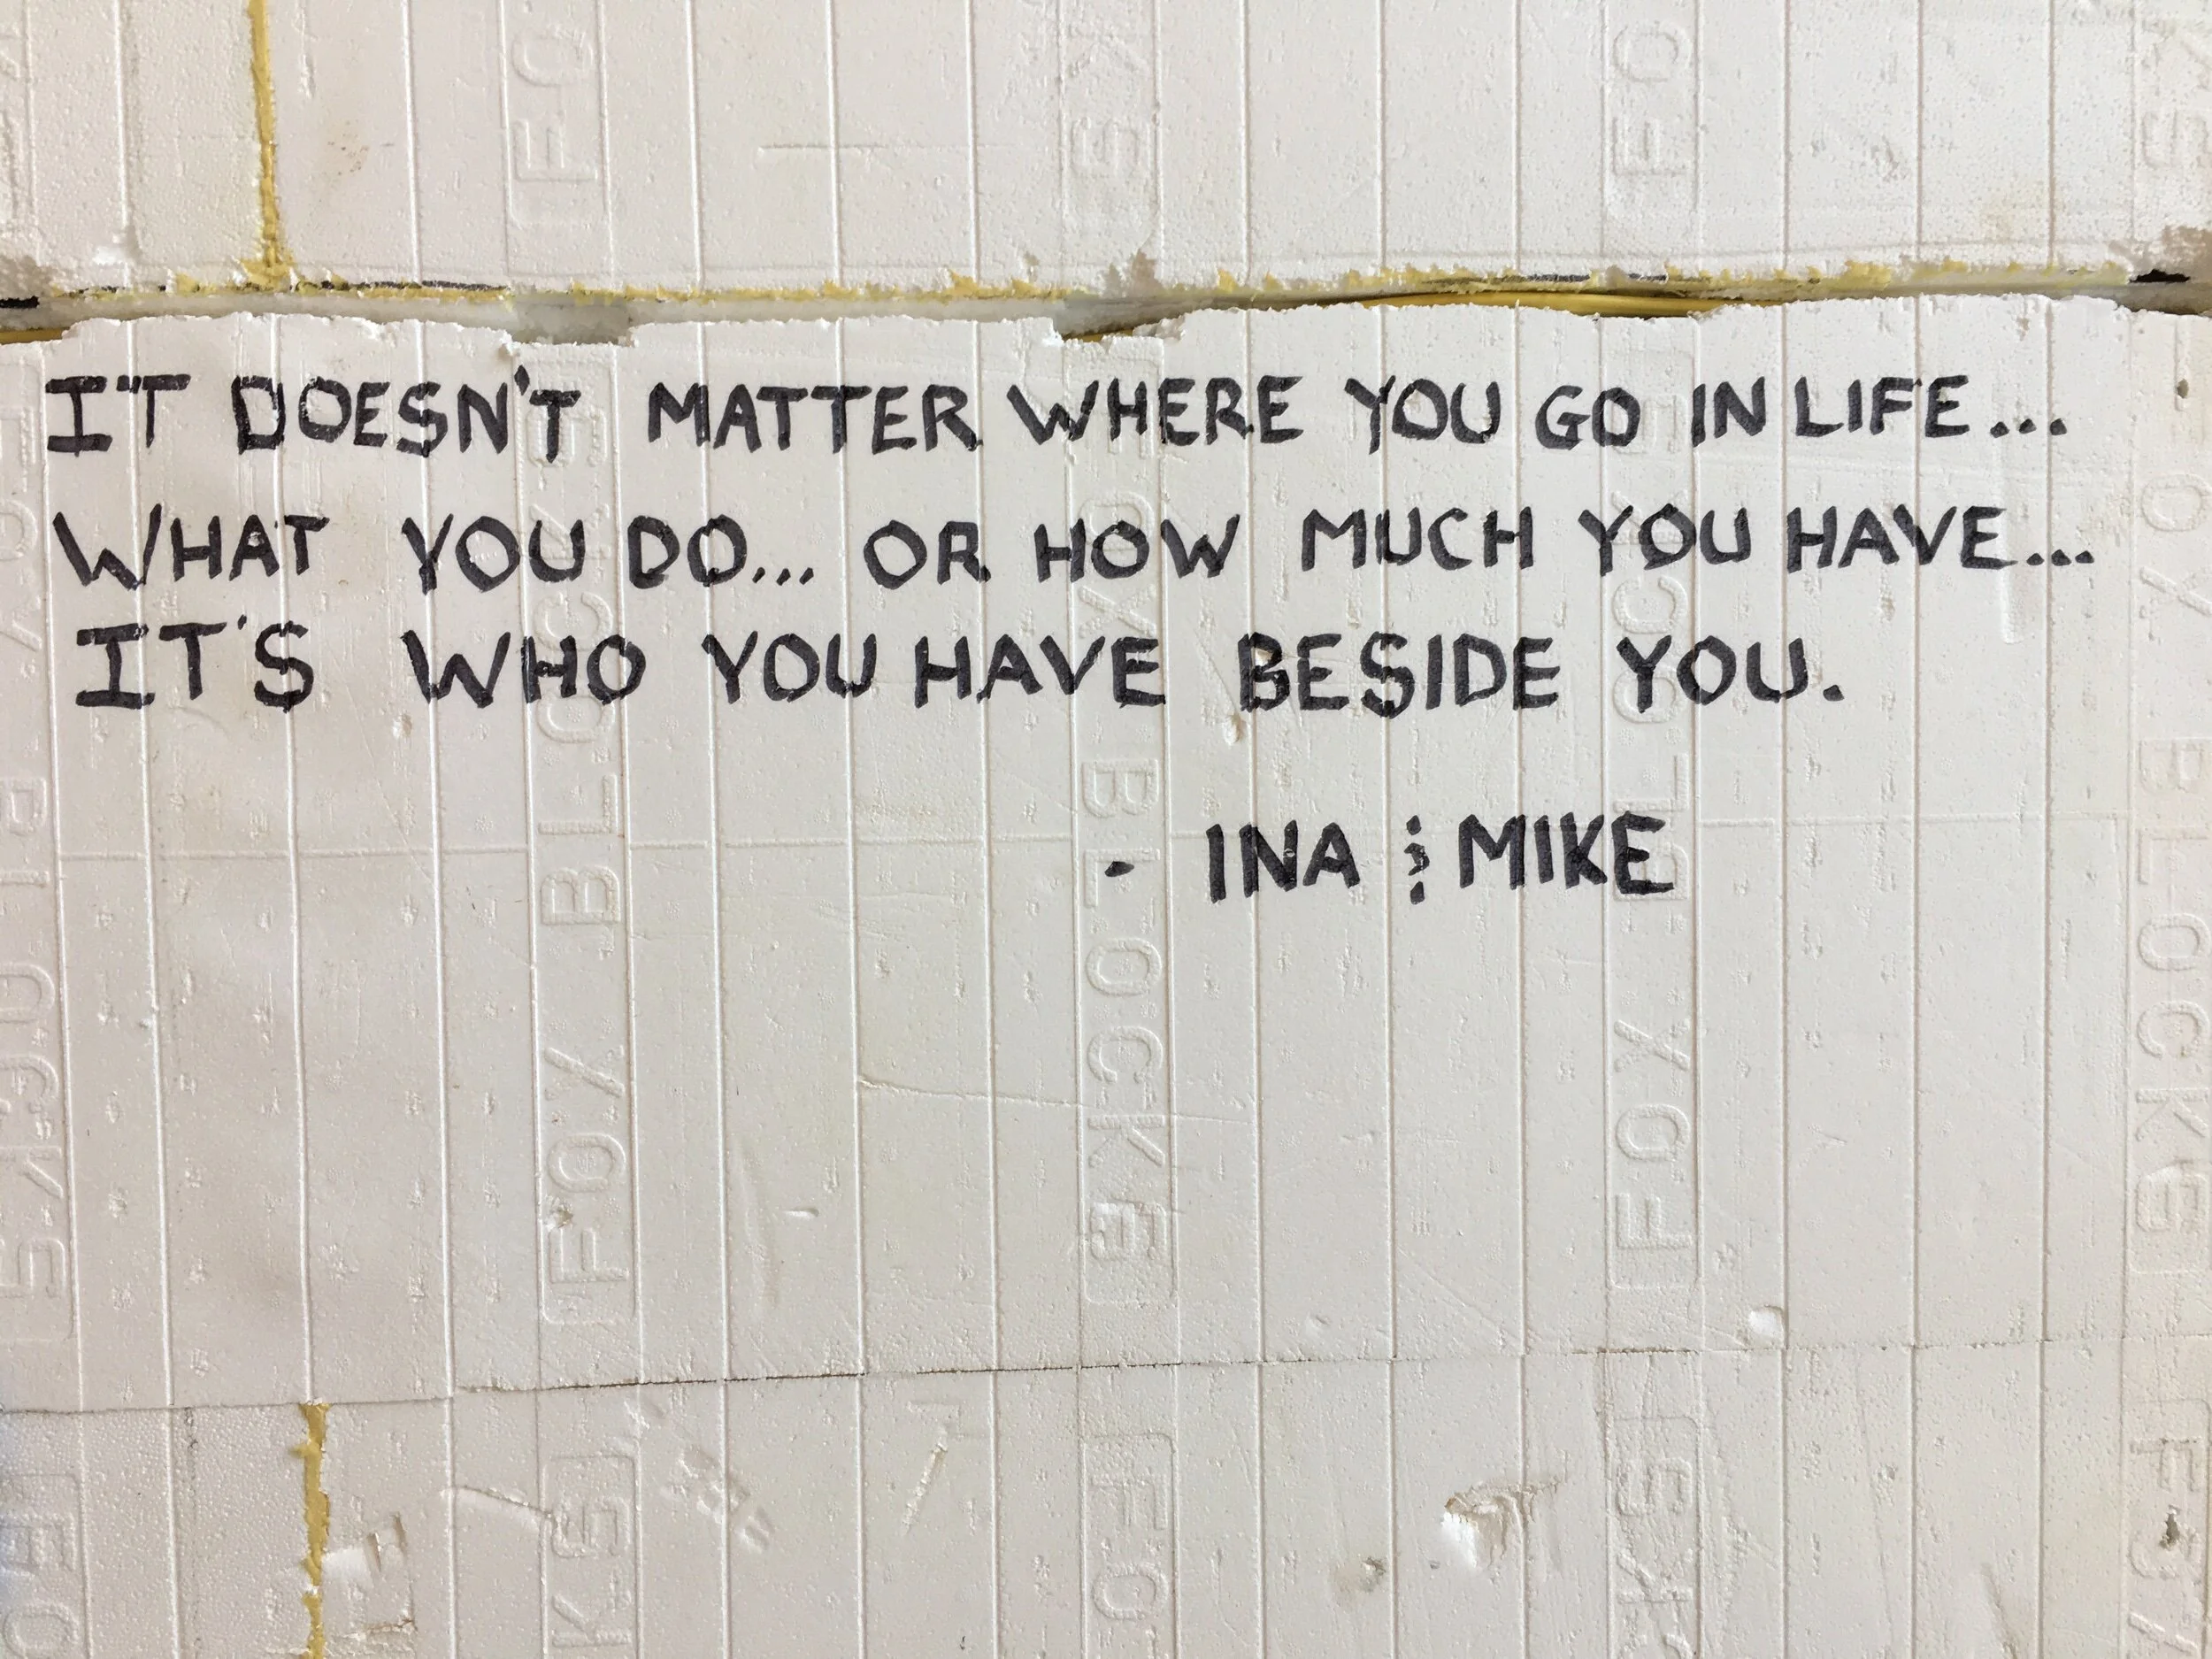 FO
KS
FO
KS
IT DOESN'T MATTER WHERE YOU GO IN LIFE...
WHAT YOU DO... OR HOW MUCH YOU HAVE...
IT'S WHO YOU HAVE BESIDE YOU.
- INA & MIKE
FOX BLOCKS
FOX BLOCKS
FOX BLOCKS
FOX BLOCKS
FOX BLOCKS
KS
FO
KS